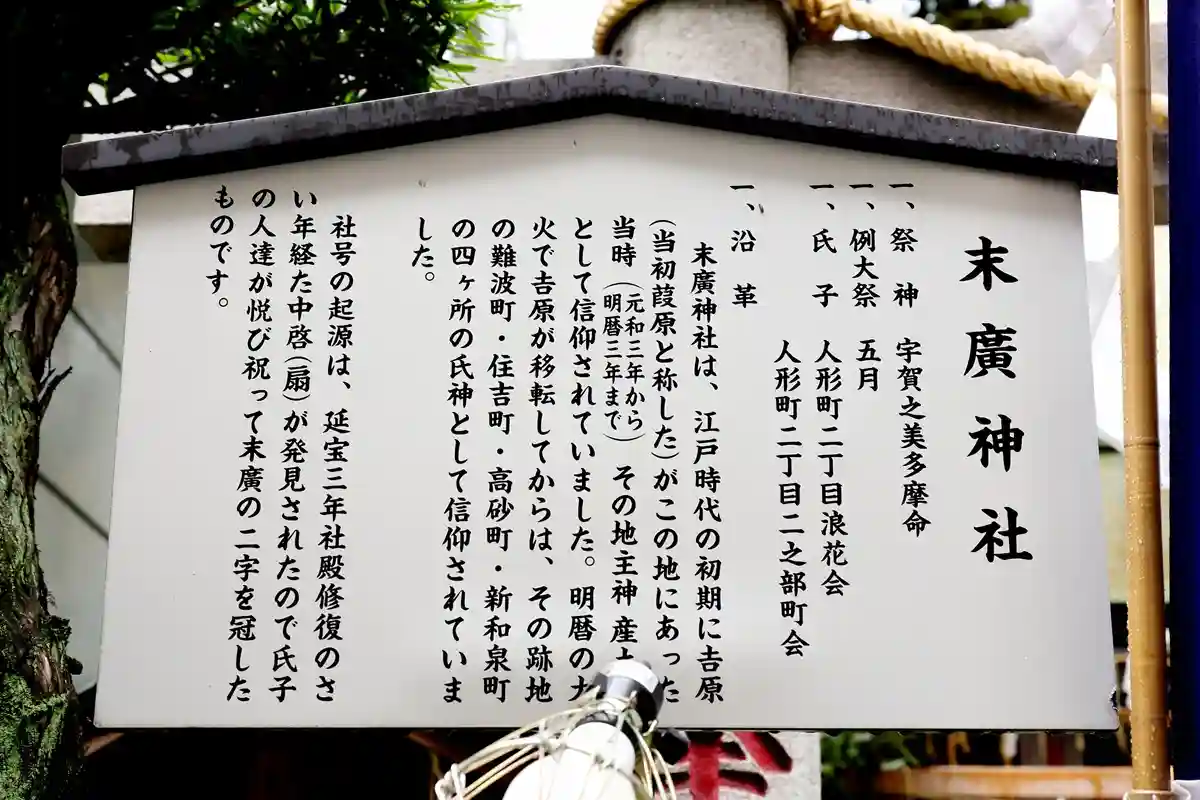 末廣神社
一、祭　神　宇賀之美多摩命
一、例大祭　五月
一、氏　子　人形町二丁目浪花会
人形町二丁目二之部町会
一、沿　革
末廣神社は、江戸時代の初期に吉原
（当初葭原と称した）がこの地にあった
当時（元和三年から
明暦三年まで）その地主神産
として信仰されていました。明暦の大
火で吉原が移転してからは、その跡地
の難波町・住吉町・高砂町・新和泉町
の四ヶ所の氏神として信仰されていま
した。
社号の起源は、延宝三年社殿修復のさ
い年経た中啓（扇）が発見されたので氏子
の人達が悦び祝って末廣の二字を冠した
ものです。